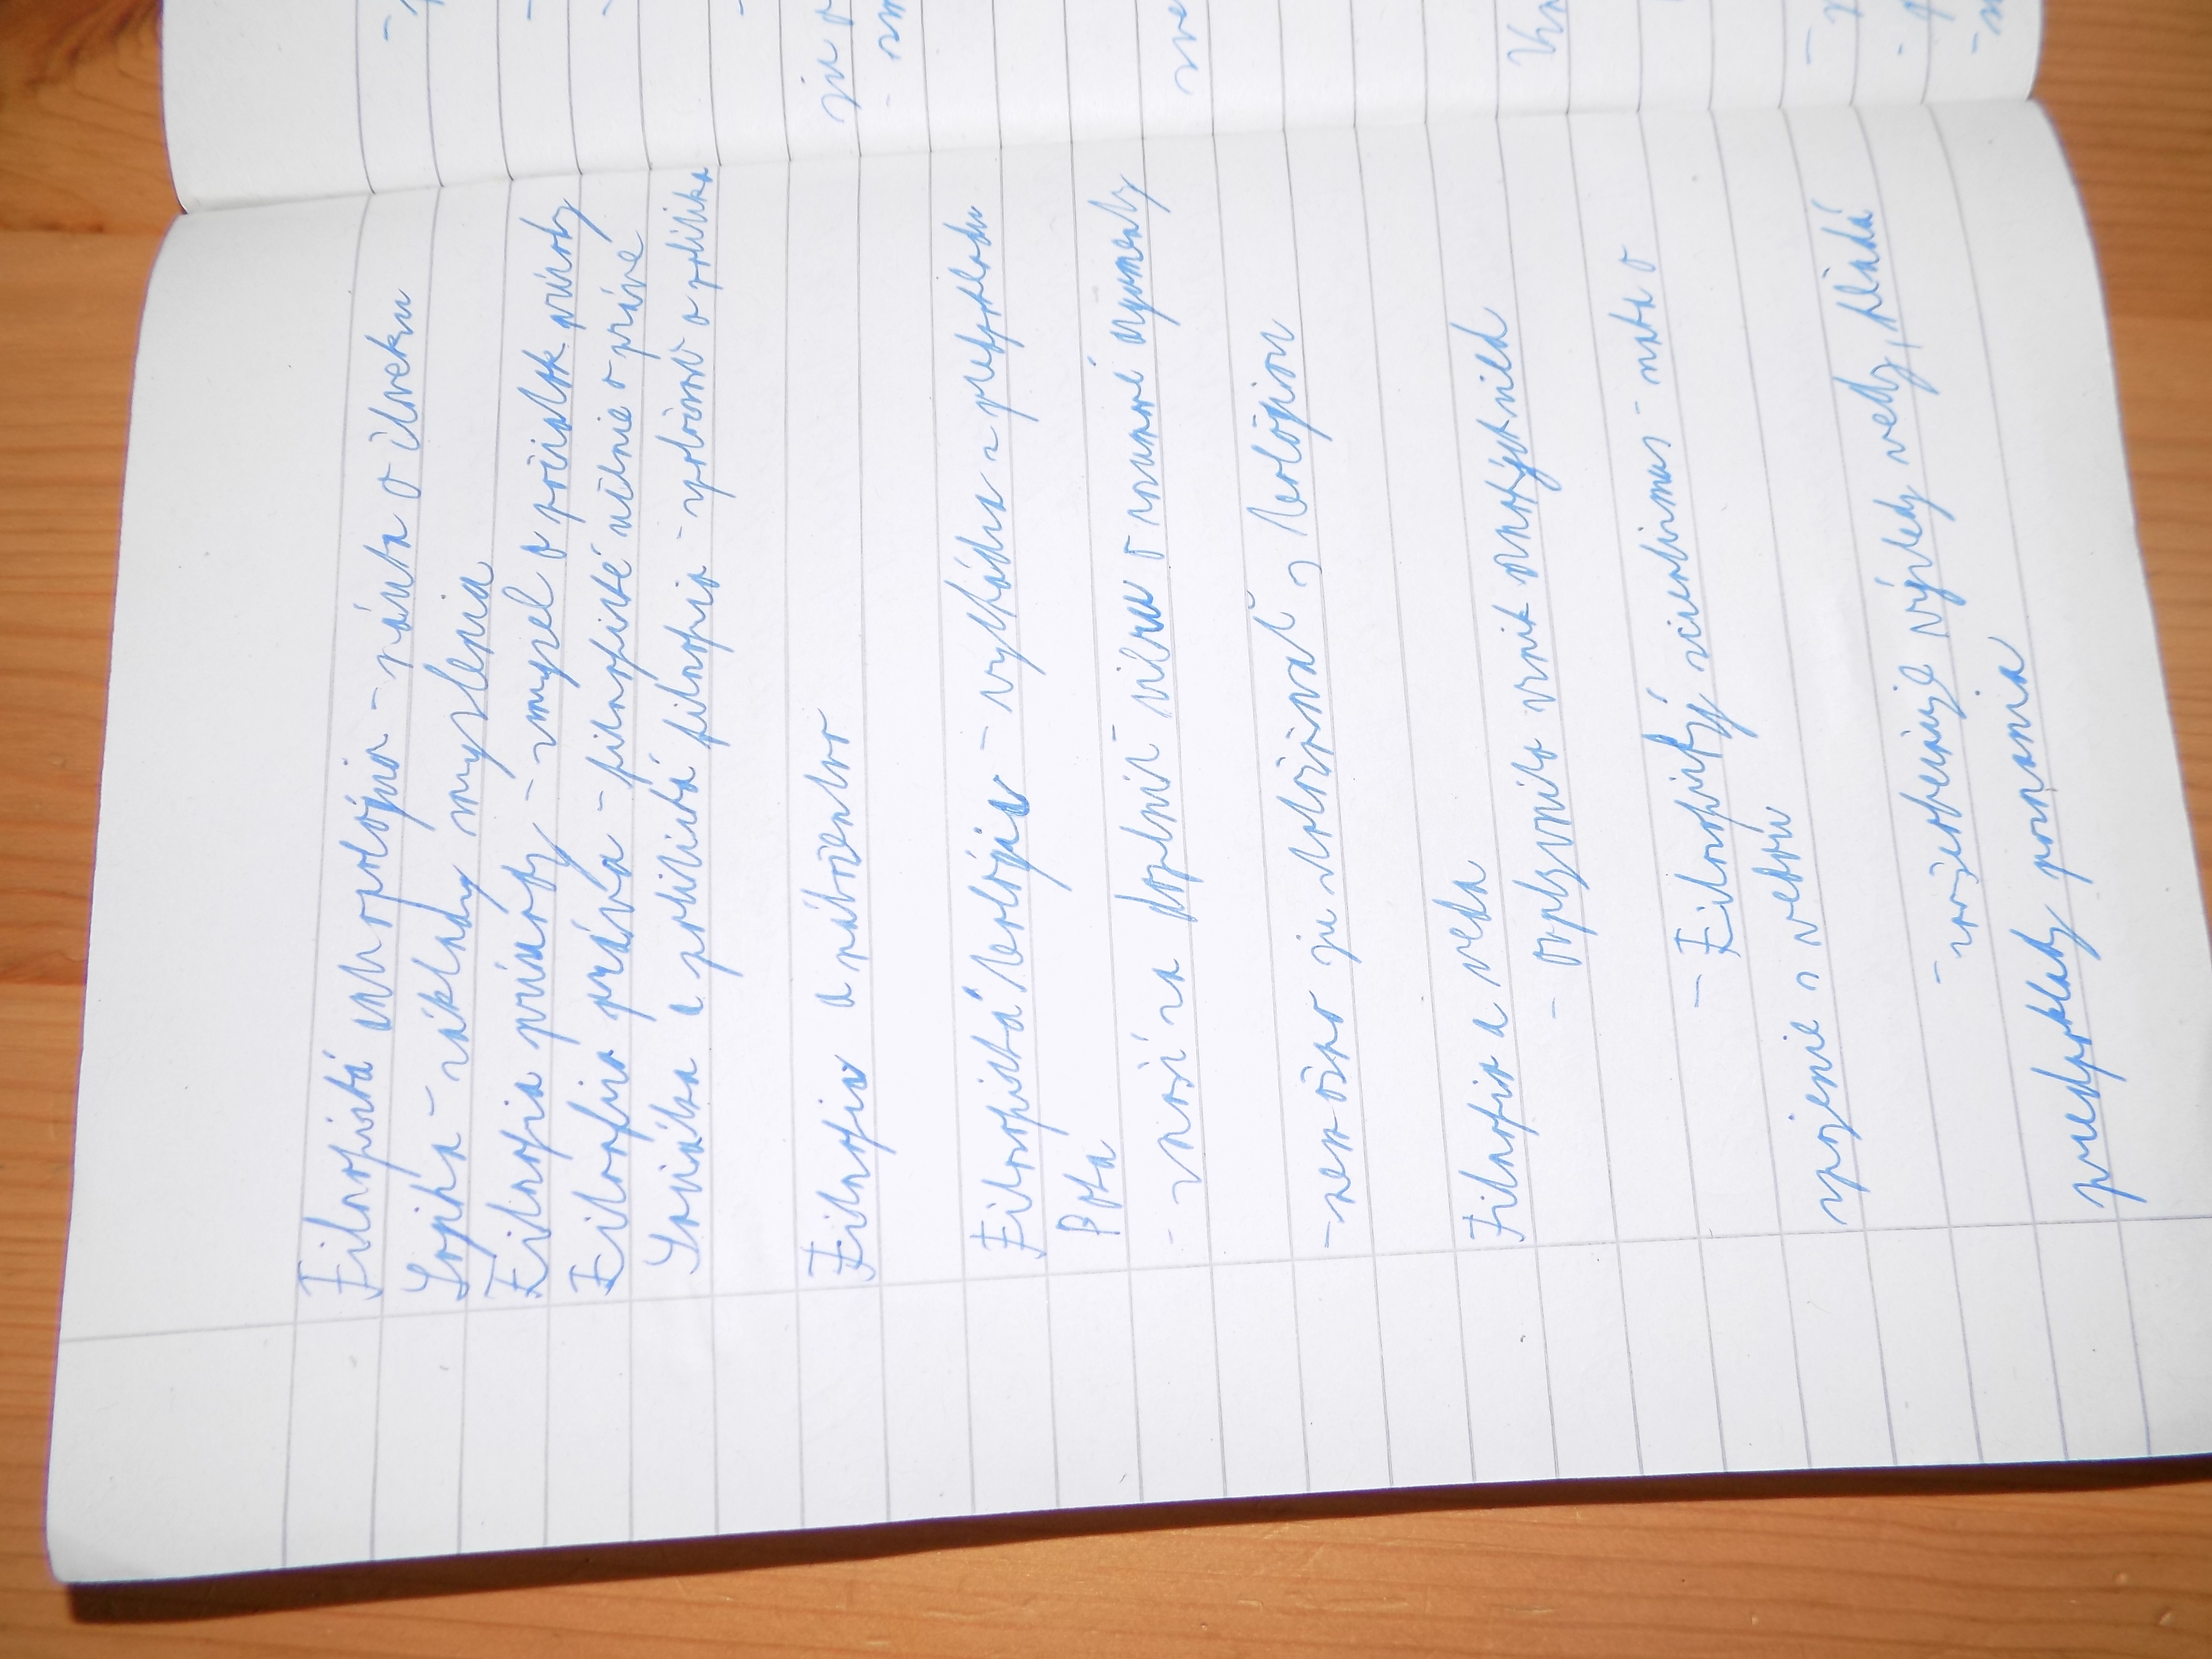 Filozofická antropológia - náuka o človeku
Logika - základy myslenia
Filozofia prírody - zmysel a počiatok prírody
Filozofia práva - filozofické učenie o práve
Sociálna a politická filozofia - spoločnosť a politika
Filozofia a náboženstvo
Filozofická teológia - vychádza z predpokladu
Boha
- snaží sa doplniť vieru o rozumné argumenty
- nemožno ju stotožňovať s teológiou
Filozofia a veda
- ovplyvnila vznik ostatných vied
- Filozofický scientizmus - snaha o
spojenie s vedou
- zovšeobecňuje výsledky vedy, hľadá
predpoklady poznania